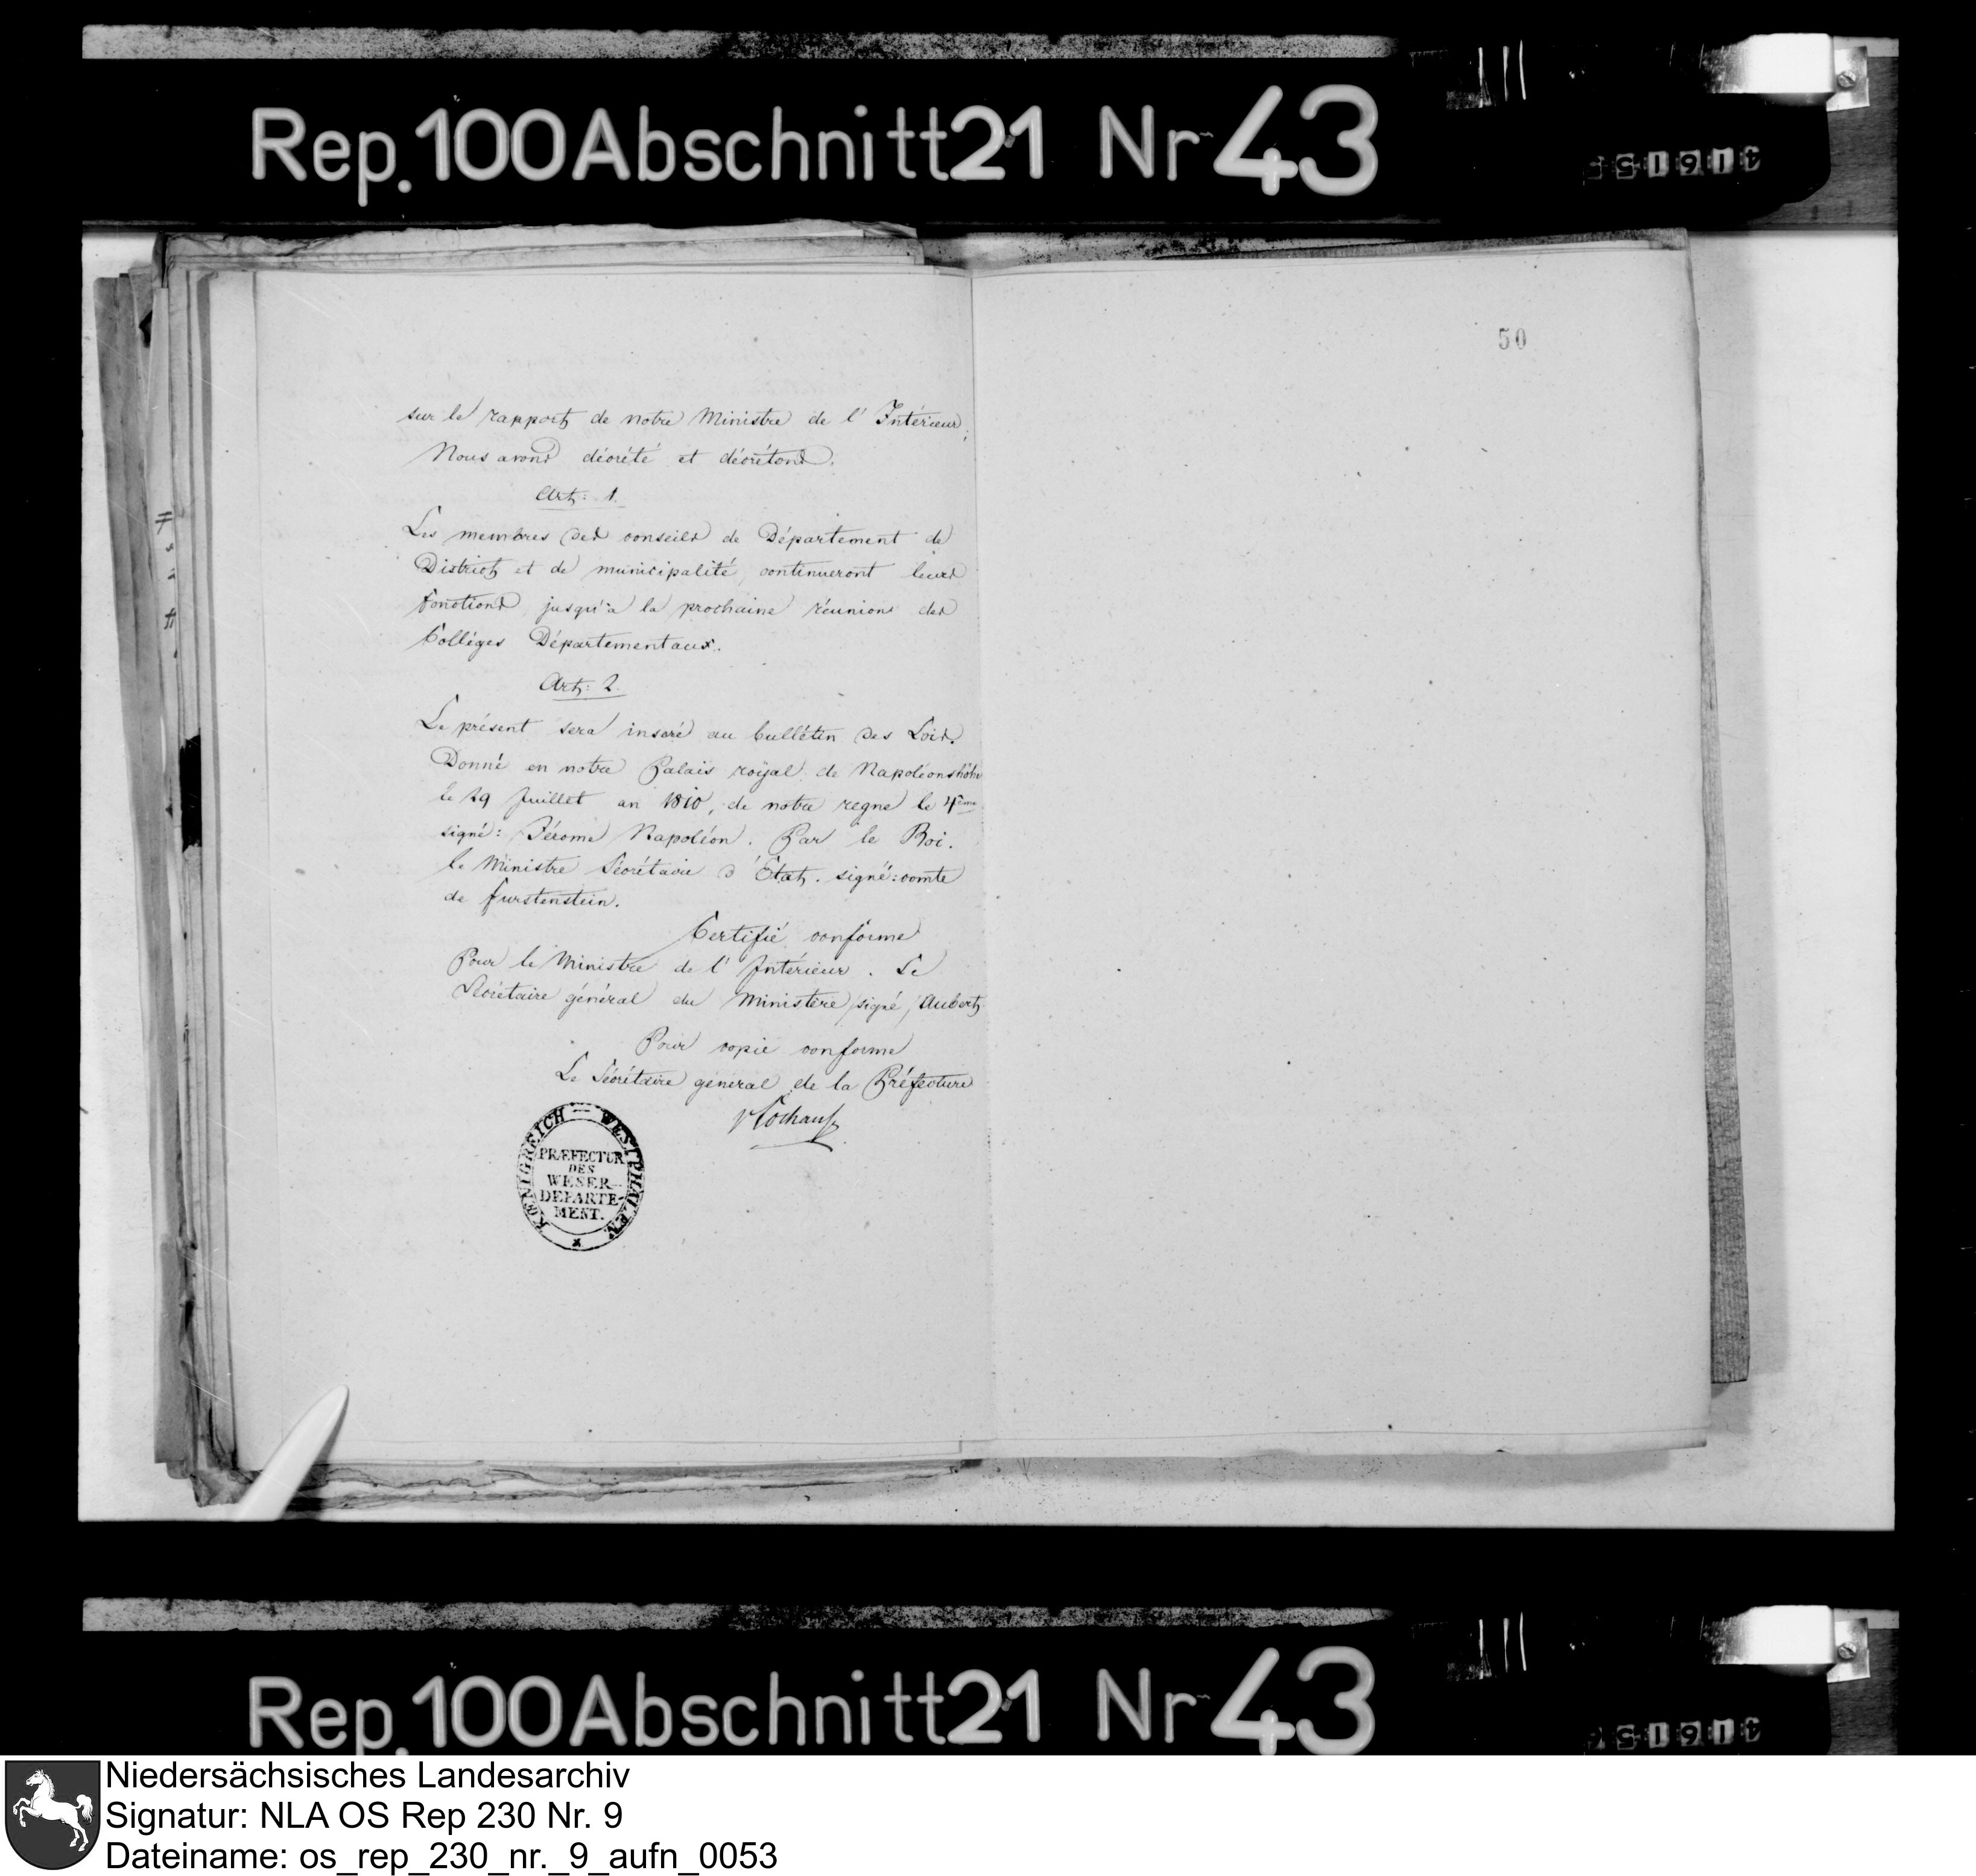 Rep. 100 Abschnitt 21 Nr 43
50
sur le rapport de notre Ministre de l'Intérieur;
Nous avons décrété et décrétons.
Art: 1.
Les membres des conseils de Département de
District et de municipalité, continueront leurs
fonctions jusqu'à la prochaine réunion des
Collèges Départementaux.
Art: 2.
Le présent sera inséré au bullétin des Lois.
Donné en notre Palais royal de Napoléonshöhe
le 29 Juillet an 1810, de notre regne le 4ème
signé: Jérome Napoléon. Par le Roi.
le Ministre Sécrétaire d'Etat. signé: comte
de furstenstein.
Certifié conforme
Pour le Ministre de l'Intérieur. Le
Secrétaire général du Ministère /signé/ Aubert
Pour copie conforme
Le Sécrétaire général de la Préfecture
KŒNIGREICH — WESTPHALEN
PRÆFECTUR
DES
WESER-
DEPARTE-
MENT.
Rep. 100 Abschnitt 21 Nr 43
Niedersächsisches Landesarchiv
Signatur: NLA OS Rep 230 Nr. 9
Dateiname: os_rep_230_nr._9_aufn_0053